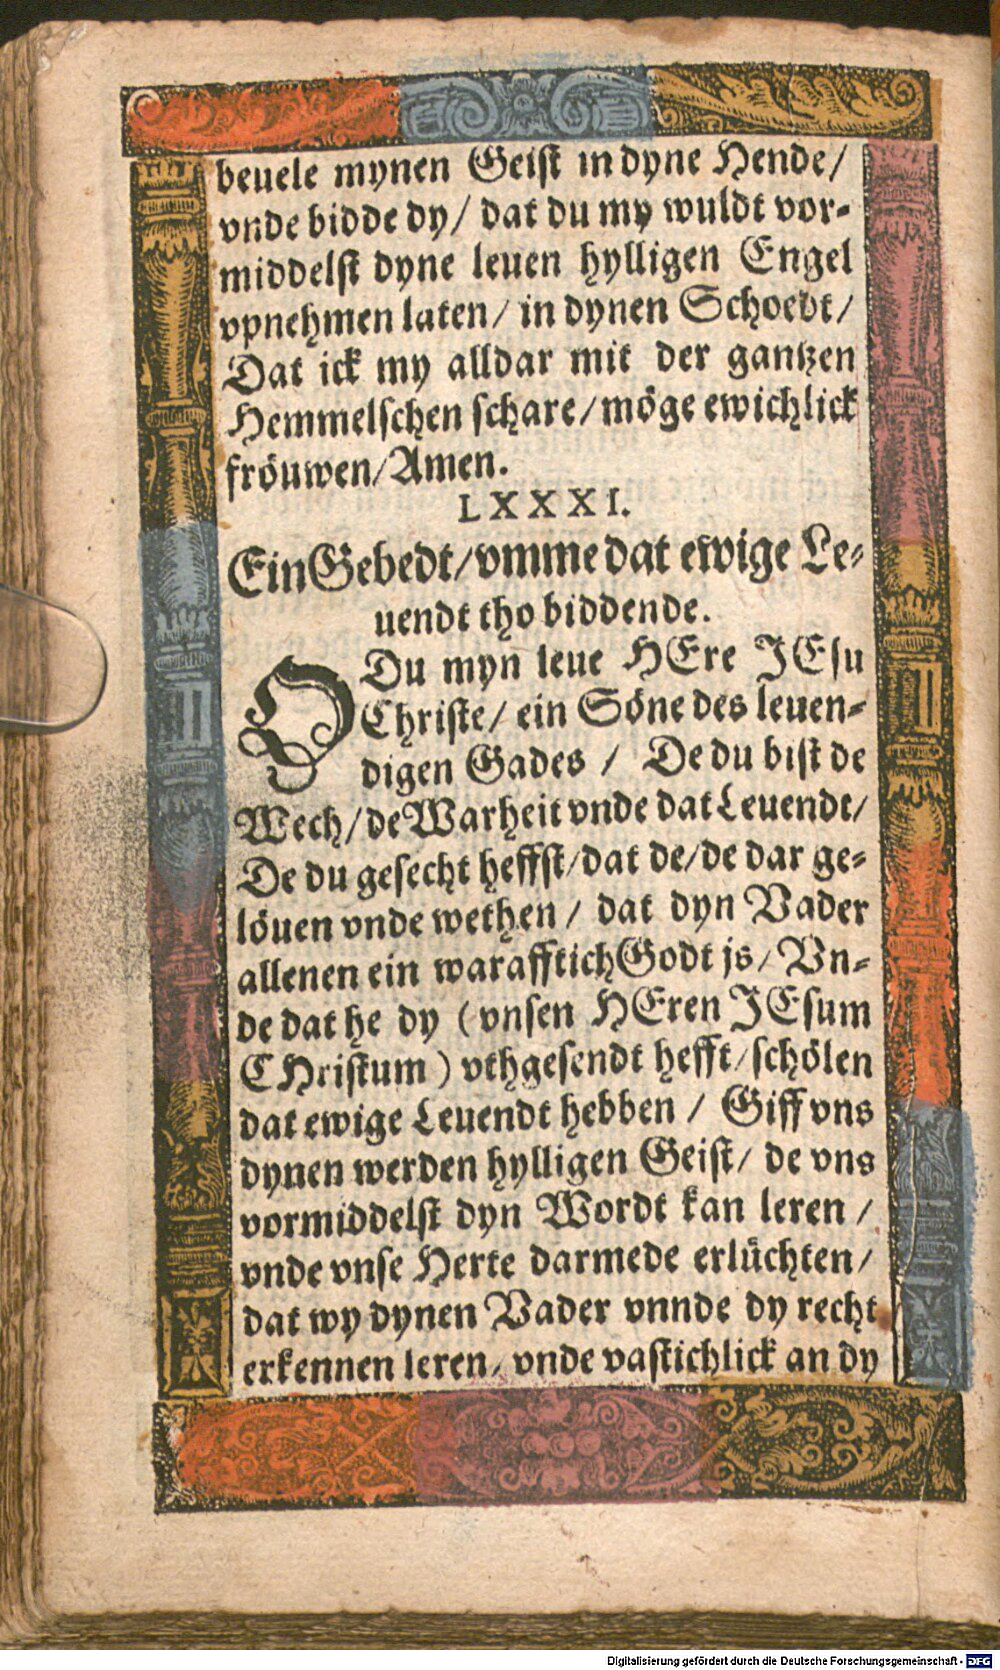 beuele mynen Geist in dyne Hende/
vnde bidde dy/ dat du my wuldt vor-
middelst dyne leuen hylligen Engel
vpnehmen laten/ in dynen Schoedt/
Dat ick my alldar mit der gantzen
Hemmelschen schare/ möge ewichlick
fröuwen/ Amen.
LXXXI.
Ein Gebedt/ vmme dat ewige Le-
uendt tho biddende.
O Du myn leue HEre JEsu
Christe/ ein Söne des leuen-
digen Gades / De du bist de
Wech/ de Warheit vnde dat Leuendt/
De du gesecht heffst/ dat de/ de dar ge-
löuen vnde wethen / dat dyn Vader
allenen ein warafftich Godt js/ Vn-
de dat he dy (vnsen HEren JEsum
CHristum) vthgesendt hefft/ schölen
dat ewige Leuendt hebben / Giff vns
dynen werden hylligen Geist/ de vns
vormiddelst dyn Wordt kan leren /
vnde vnse Herte darmede erlüchten/
dat wy dynen Vader vnnde dy recht
erkennen leren, vnde vastichlick an dy
Digitalisierung gefördert durch die Deutsche Forschungsgemeinschaft - DFG